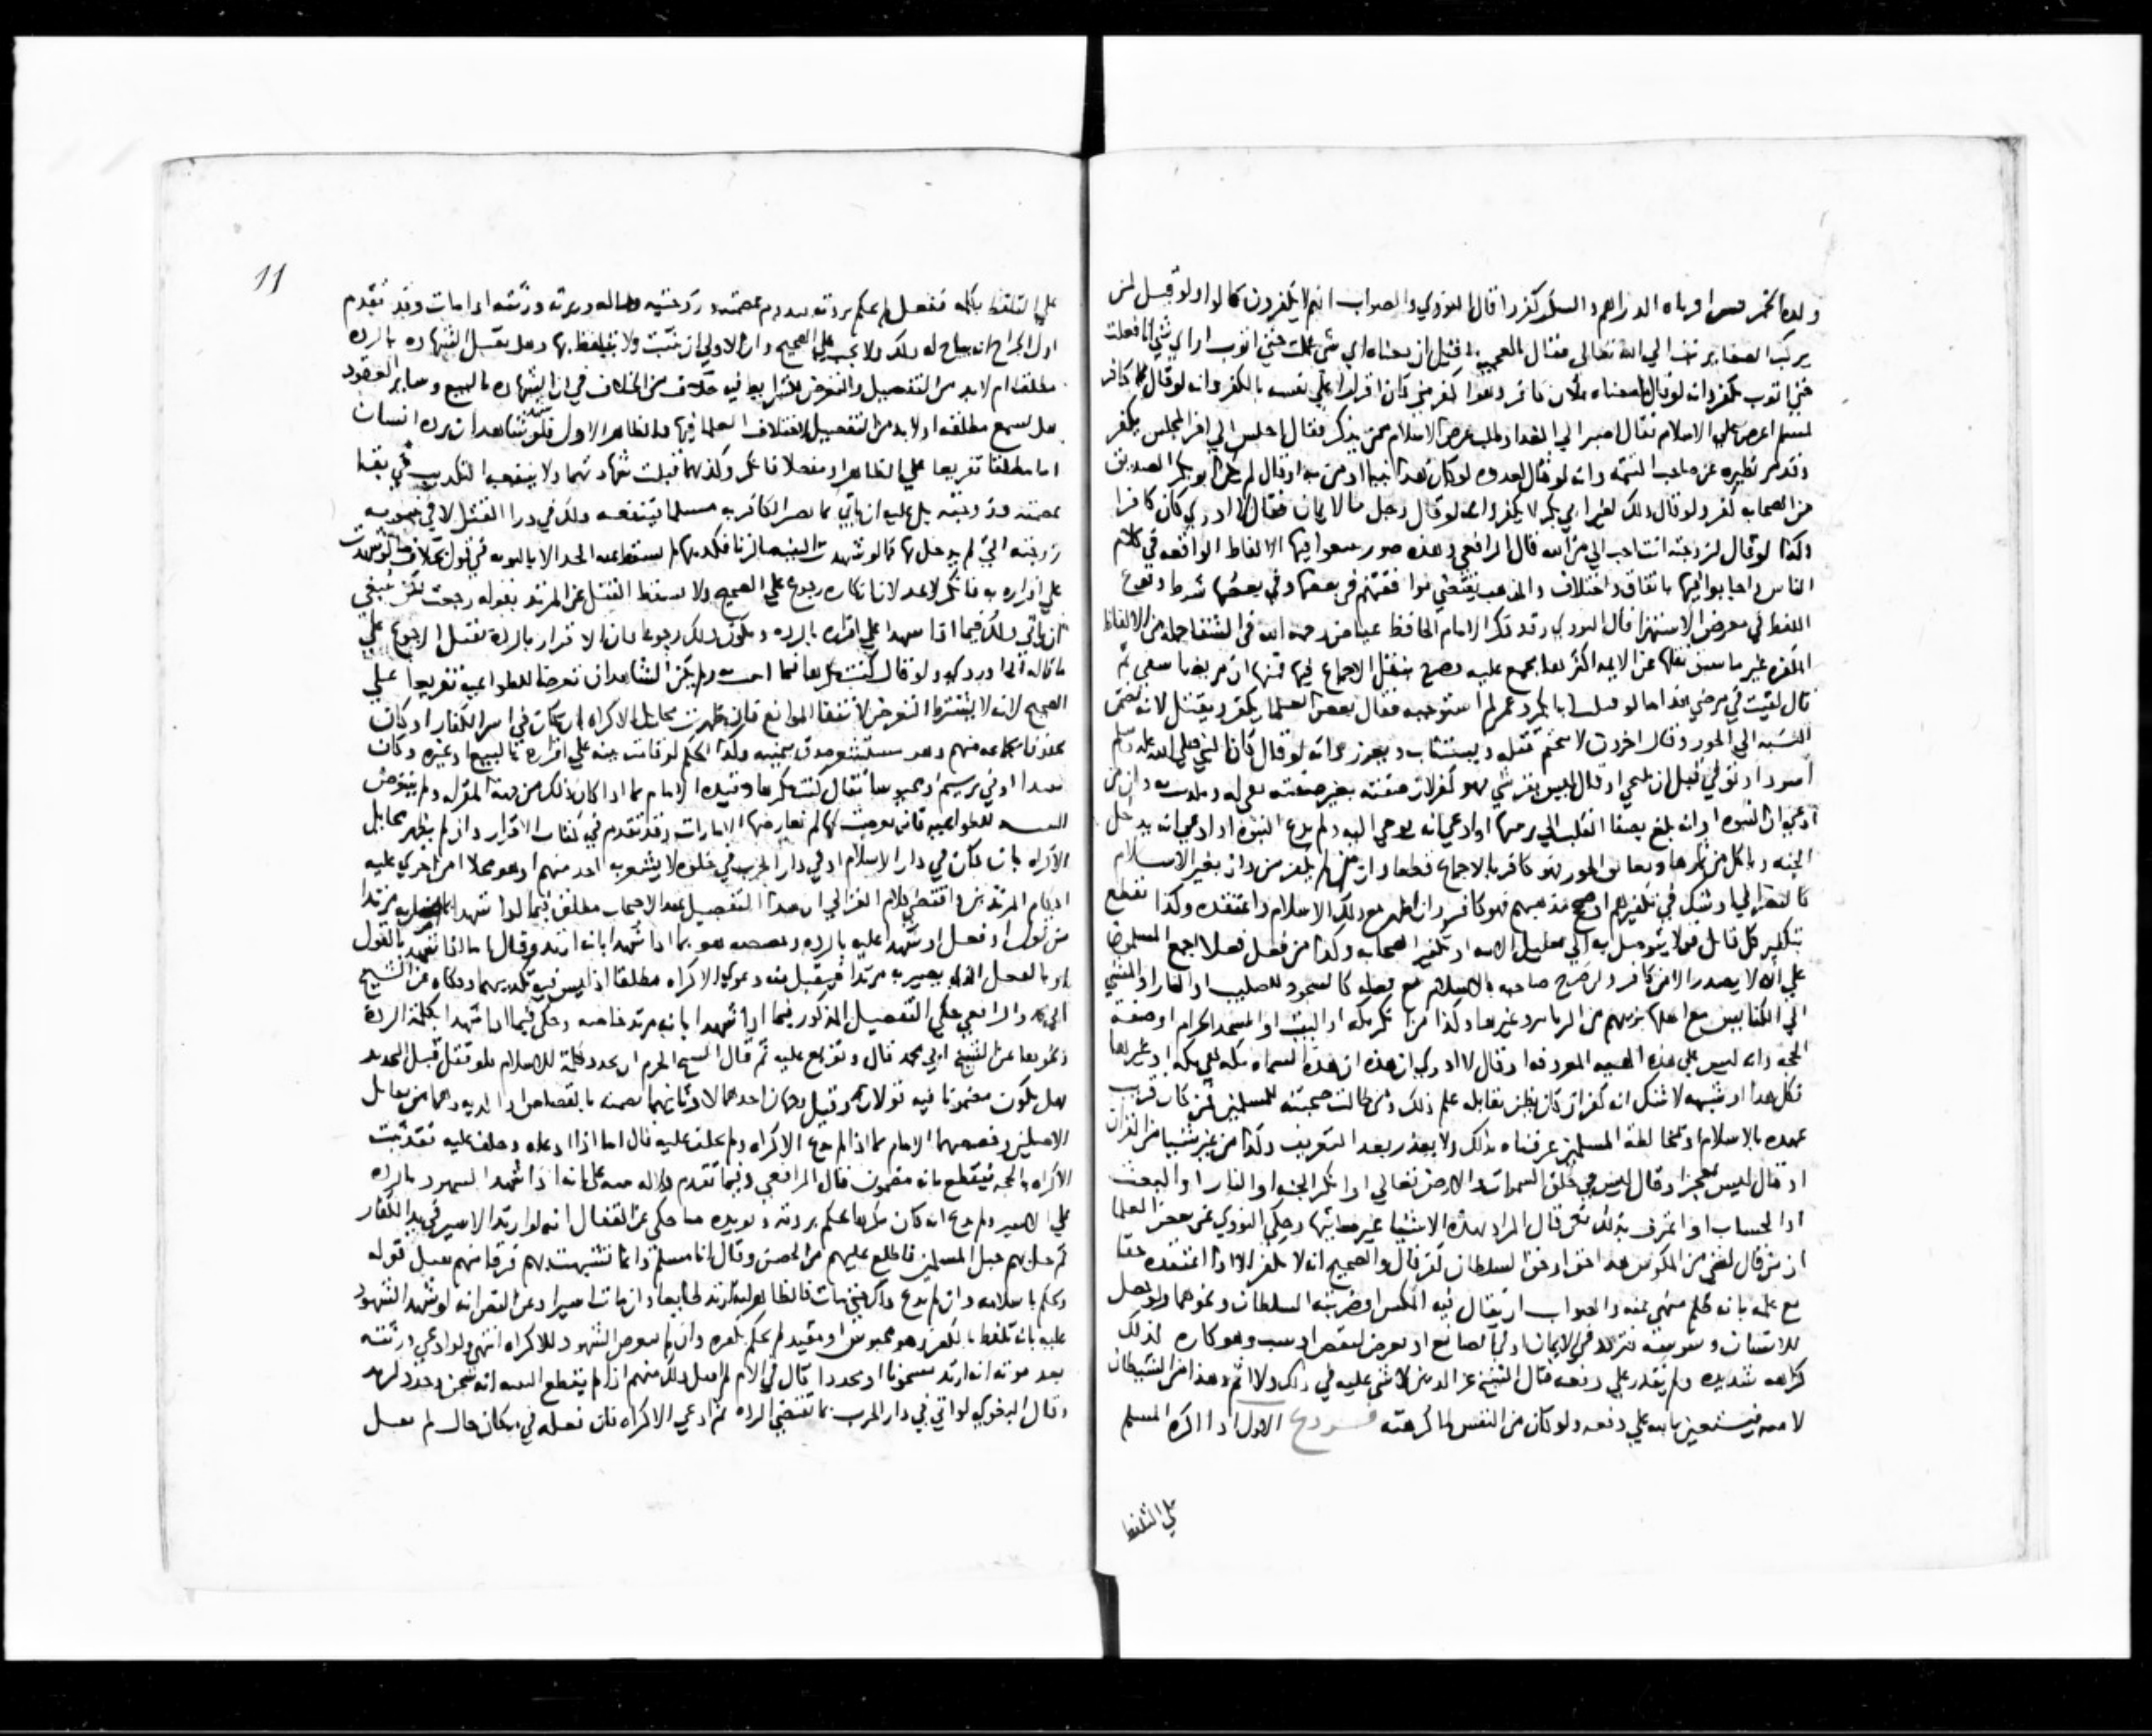 ولده الخمر فنثر اقرباه الدراهم والسكر كفروا قال النووي والصواب انهم لا يكفرون قالوا ولو قيل لمن
يرتكب الصغاير تب الي الله تعالى فقال بالعجميه ما قيل ان معناه اي شي عملت حتي اتوب
حتي اتوب كفر وانه لو قال
لمسلم اعرض علي الاسلام فقال اصبر الي الغد او طلب عرض الاسلام من مذكر فقال اجلس الي اخر المجلس يكفر
وقد مر نظيره عن صاحب التتمه وانه لو قال لعدوه لو كان هذا نبيا لم اومن به او قال لم يكن ابو بكر الصديق
من الصحابه كفر ولو قال ذلك لغير ابي بكر لا يكفر وانه لو قال رجل ما الايمان فقال لا ادري كان كافرا
وكذا لو قال لزوجته انت احب الي من الله قال الرافعي وهذه صور تتبعوا فيها الالفاظ الواقعه في كلام
الناس واجابوا فيها باتفاق واختلاف والمذهب يقتضي موافقتهم في بعضها وفي بعضها شرط وقوع
اللفظ في معرض الاستهزا قال النووي وقد ذكر الامام الحافظ عياض رحمه الله في الشفا جمله من الالفاظ
المكفره غير ما سبق نقلها عن الايمه اكثرها مجمع عليه وصرح بنقل الاجماع فيها فمنها ان مريضا شفي ثم
قال لقيت في مرضي هذا ما لو قتلت ابا بكر وعمر لم استوجبه فقال بعض العلما يكفر ويقتل لانه تضمن
النسبه الي الجور وقال اخرون لا يتحتم قتله ويستتاب ويعزر وانه لو قال كان النبي صلي الله عليه وسلم
اسود او توفي قبل ان يلتحي او قال ليس بقرشي فهو كفر لان صفته بغير صفته نفي له وتكذيب به وان من
ادعي ان النبوه او انه يبلغ بصفا القلب الي مرتبتها او ادعي انه يوحي اليه ولم يدع النبوه او ادعي انه يدخل
الجنه وياكل من ثمرها ويعانق الحور فهو كافر بالاجماع قطعا وان من لم يكفر من دان بغير الاسلام
كالنصراني او شك في تكفيرهم او صحح مذهبهم فهو كافر وان اظهر مع ذلك الاسلام واعتقده وكذا نقطع
بتكفير كل قايل قولا يتوصل به الي تضليل الامه او تكفير الصحابه وكذا من فعل فعلا اجمع المسلمون
علي انه لا يصدر الا من كافر وان صرح صاحبه بالاسلام مع فعله كالسجود للصليب او النار او المشي
الي الكنايس مع اهلها بزيهم من الزنانير وغيرها وكذا من انكر مكه او البيت او المسجد الحرام او صفة
الحج وانه ليس علي هذه الهييه المعروفه او قال لا ادري ان هذه ان هذه المسماه بمكه هي مكه او غيرها
فكل هذا او شبهه لا شك انه كفر ان كان يظن بقايله علم ذلك ومن طالت صحبته للمسلمين فمن كان قريب
عهده بالاسلام او بمخالطه المسلمين عرفناه بذلك ولا يعذر بعد التعريف وكذا من غير شيا من القران
او قال ليس بمعجز او قال ليس في خلق السموات والارض دلاله علي الله تعالي او انكر الجنه او النار او البعث
او الحساب او اعترف بذلك لكن قال المراد بهذه الاشيا غير معانيها وحكي النووي عن بعض العلما
ان من قال لشي من المكوس هذا حق او حق السلطان كفر قال والصحيح انه لا يكفر الا اذا اعتقده حقا
مع علمه بانه ظلم منهي عنه والصواب ان يقال فيه المكس او ضريبة السلطان ونحوهما ولو حصل
للانسان وسوسه فتردد في الايمان او في الصانع او تعرض لنقص او سب وهو كاره لذلك
كراهه شديده ولم يقدر علي دفعه قال الشيخ عز الدين لا شي عليه في ذلك ولا اثم وهذا من الشيطان
لا منه فيستعين بالله علي دفعه ولو كان من النفس لما كرهته فروع الاول اذا اكره المسلم
علي التلفظ
11
علي التلفظ بكلمه ففعل لم يحكم بردته فتدوم عصمته وزوجتيه وماله ويرث ورثته اذا مات وقد تقدم
اول الجراح انه يباح له ذلك ولا يجب علي الصحيح وان الاولي ان يثبت ولا يتلفظ بها وهل تقبل الشهاده بالرده
مطلقا ام لابد من التفصيل والتعرض للشرايط فيه خلاف من الخلاف في ان الشهاده بالبيع وساير العقود
هل تسمع مطلقه او لابد من التفصيل لاختلاف العلما فيها والظاهر الاول فلو شهد شاهدان برده انسان
اما مطلقا تفريعا علي الظاهر او مفصلا فانكر وكذبهما قبلت شهادتهما ولا ينفعه التكذيب في بقا
عصمته وزوجته بل عليه ان ياتي بما يصير الكافر به مسلما فينفعه وذلك في درا القتل لا في بينونه
زوجته التي لم يدخل بها كما لو شهدت البينه بالزنا فكذبها لم يسقط عنه الحد الا بالتوبه في قول بخلاف ما لو شهدت
علي اقراره به فانكر لا يحد لان انكاره رجوع علي الصحيح ولا يسقط القتل عن المرتد بقوله رجعت لكن ينبغي
ان ياتي ذلك فيما اذا شهدا علي اقراره بالرده ويكون ذلك رجوعا فان الاقرار بالردة يقبل الرجوع علي
ما قاله ولو قال كنت مكرها فيما اتيت به ولم يكن الشاهدان تعرضا للطواعيه تفريعا علي
الصحيح لانه لا يشترط التعرض لانتفا الموانع فان ظهرت مخايل الاكراه بان كان في اسر الكفار او كان
محفوفا بجماعه منهم وهو مستشعر صدق بيمينه وكذا الحكم لو قامت بينه علي اقراره بالبيع وغيره وكان
مقيدا او في ترسيم او محبوسا فقال كنت مكرها وقيده الامام بما اذا كان ذلك من جهة المقر له ولم يتعرض
البينه للطواعيه فانه لم تعارضها الامارات وقد تقدم في كتاب الاقرار وان لم يظهر مخايل
الاكراه بان كان في دار الاسلام او في دار الحرب في خلوه لا يشعر به احد منهم او هو مخلا امن اجري عليه
احكام المرتدين واقتضي كلام الغزالي ان هذا التفصيل عند الاصحاب مطلق فيما لو شهدا مرتدا
من قول او فعل او شهدا عليه بالرده وخصصه هو بما اذا شهدا بانه ارتد وقال بالقول
او بالفعل الذي يصير به مرتدا فيقبل منه دعوي الاكراه مطلقا اذ ليس فيه تكذيبهما وحكاه عن الشيخ
ابي محمد والرافعي حكي التفصيل المذكور فيما اذا شهدا بانه مرتد خاصه وحكي فيما اذا شهدا بكلمة الردة
ونحوها عن الشيخ ابي محمد قال وتفرع عليه ثم قال الشيخ الحزم ان يجدد كلمة للاسلام فلو قتل قبل التجديد
هل يكون مضمونا فيه قولان وقيل وجهان احدهما لا وثانيهما نعم
الاصلين وخصصهما الامام بما اذا لم يدع الاكراه ولم يحلف عليه قال اما اذا ادعاه وحلف عليه فقد ثبت
الاكراه بالحجه فيقطع بانه مضمون قال الرافعي وفيما تقدم دلاله بينه علي انه اذا شهد الشهود بالرده
علي الاسير ولم يدع انه كان مكرها حكم بردته ويويده ما حكي عن القفال انه لو ارتد الاسير في يد الكفار
ثم حل بهم خيل المسلمين فاطلع عليهم من الحصن وقال انا مسلم وانما تشبهت بهم فرقا منهم يقبل قوله
ويحكم باسلامه وان لم يدع ذلك حتي مات فالظاهر انه ارتد طايعا وان مات اسيرا وعن النص انه لو شهد الشهود
عليه بانه تلفظ بالكفر وهو محبوس او مقيد لم يحكم بكفره وان لم يتعرض الشهود للاكراه انتهي ولو ادعي ورثته
بعد موته انه ارتد مسجونا او محددا قال في الام لم يقبل ذلك منهم اذا لم يقطع البينه انه سجن وحدد ليرتد
وقال البغوي لو اتي في دار الحرب بما تقتضي الرده ثم ادعي الاكراه فان فعله في مكان خال لم يقبل